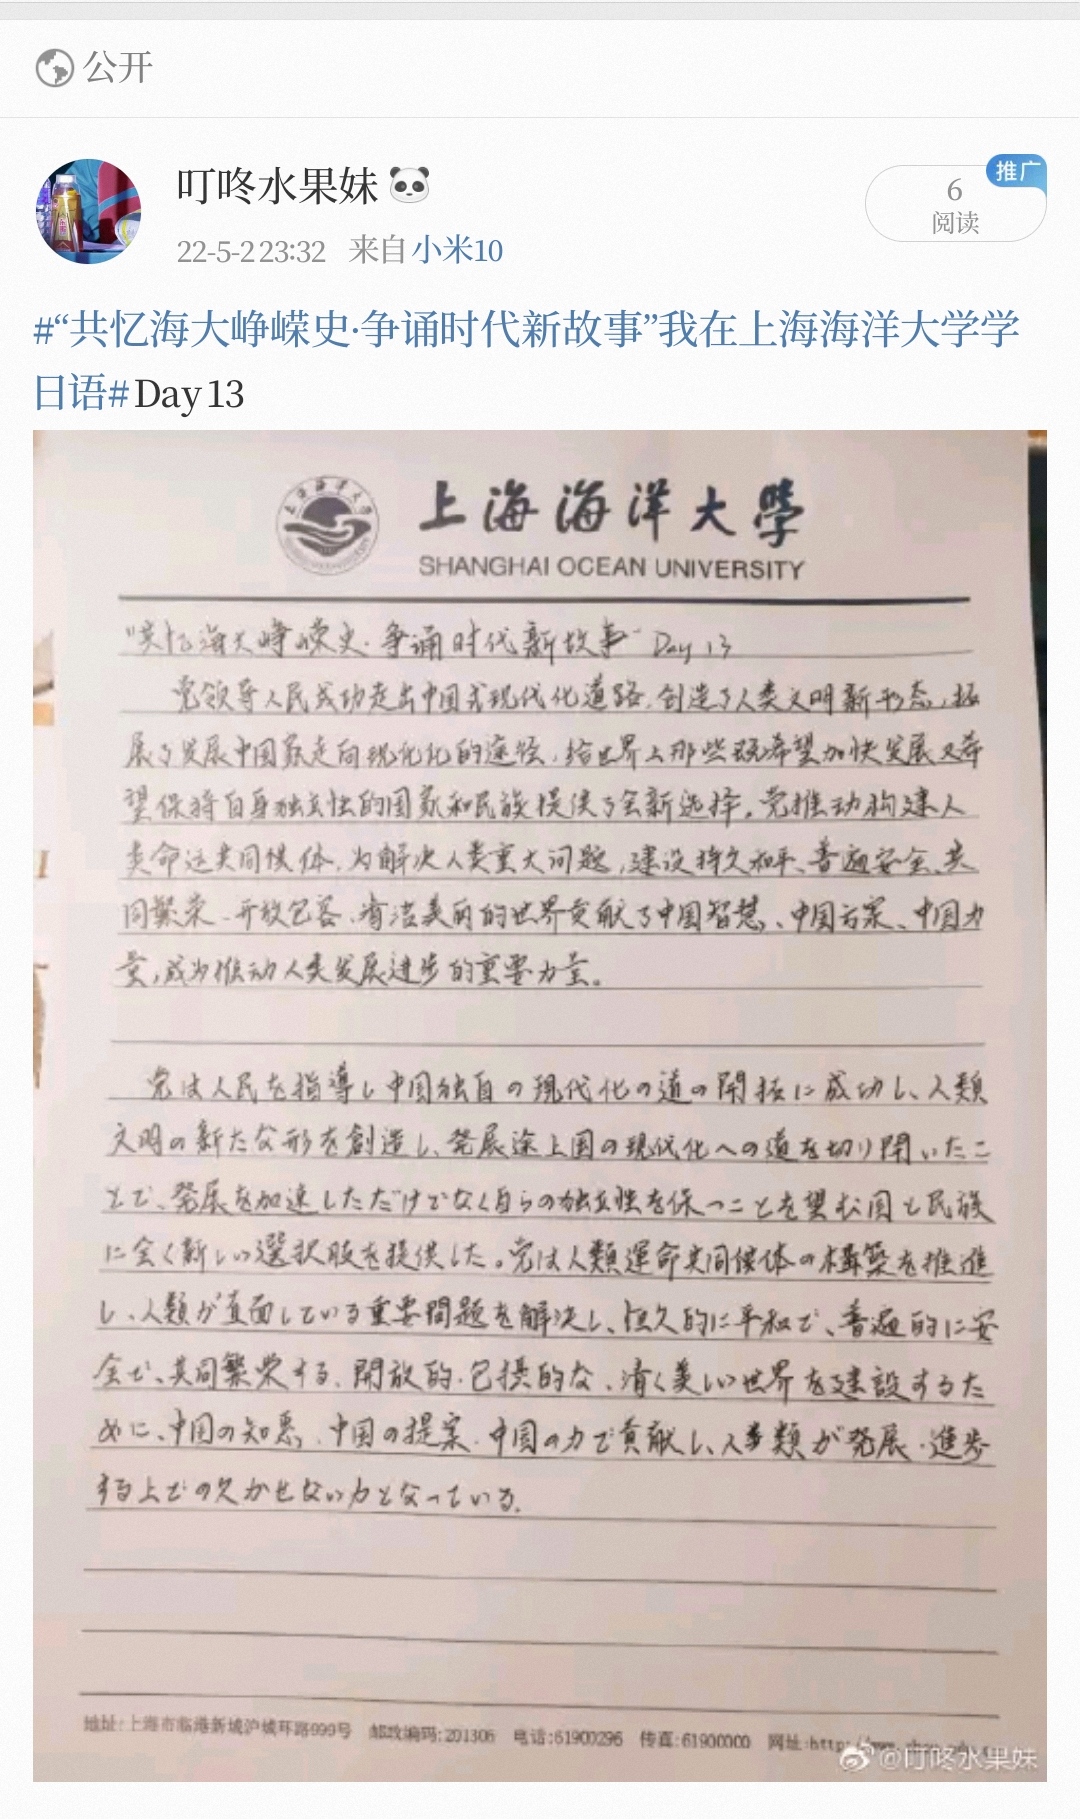 公开
叮咚水果妹🐼
22-5-2 23:32 来自 小米10
推广
6
阅读
#“共忆海大峥嵘史·争诵时代新故事”我在上海海洋大学学
日语# Day 13
上海海洋大學
SHANGHAI OCEAN UNIVERSITY
“共忆海大峥嵘史·争诵时代新故事” Day 13
党领导人民成功走出中国式现代化道路,创造了人类文明新形态,拓
展了发展中国家走向现代化的途径,给世界上那些既希望加快发展又希
望保持自身独立性的国家和民族提供了全新选择。党推动构建人
类命运共同体,为解决人类重大问题,建设持久和平、普遍安全、共
同繁荣、开放包容、清洁美丽的世界贡献了中国智慧、中国方案、中国力
量,成为推动人类发展进步的重要力量。
党は人民を指導し中国独自の現代化の道の開拓に成功し、人類
文明の新たな形を創造し、発展途上国の現代化への道を切り開いたこ
とで、発展を加速しただけでなく自らの独立性を保つことを望む国と民族
に全く新しい選択肢を提供した。党は人類運命共同体の構築を推進
し、人類が直面している重要問題を解決し、恒久的に平和で、普遍的に安
全で、共同繁栄する、開放的・包摂的な、清く美しい世界を建設するた
めに、中国の知恵、中国の提案、中国の力で貢献し、人類が発展・進歩
する上での欠かせない力となっている。
地址:上海市临港新城沪城环路999号 邮政编码:201306 电话:61900296 传真:61900000 网址:http://www.
@叮咚水果妹